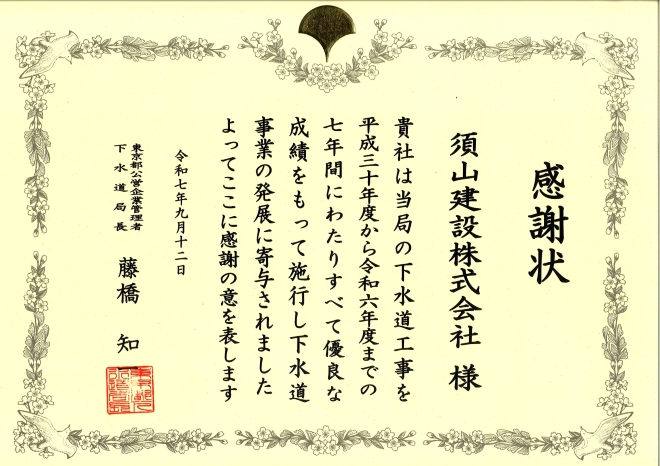 感謝状
須山建設株式会社 様
貴社は当局の下水道工事を
平成三十年度から令和六年度までの
七年間にわたりすべて優良な
成績をもって施行し下水道
事業の発展に寄与されました
よってここに感謝の意を表します
令和七年九月十二日
東京都公営企業管理者
下水道局長
藤橋 知